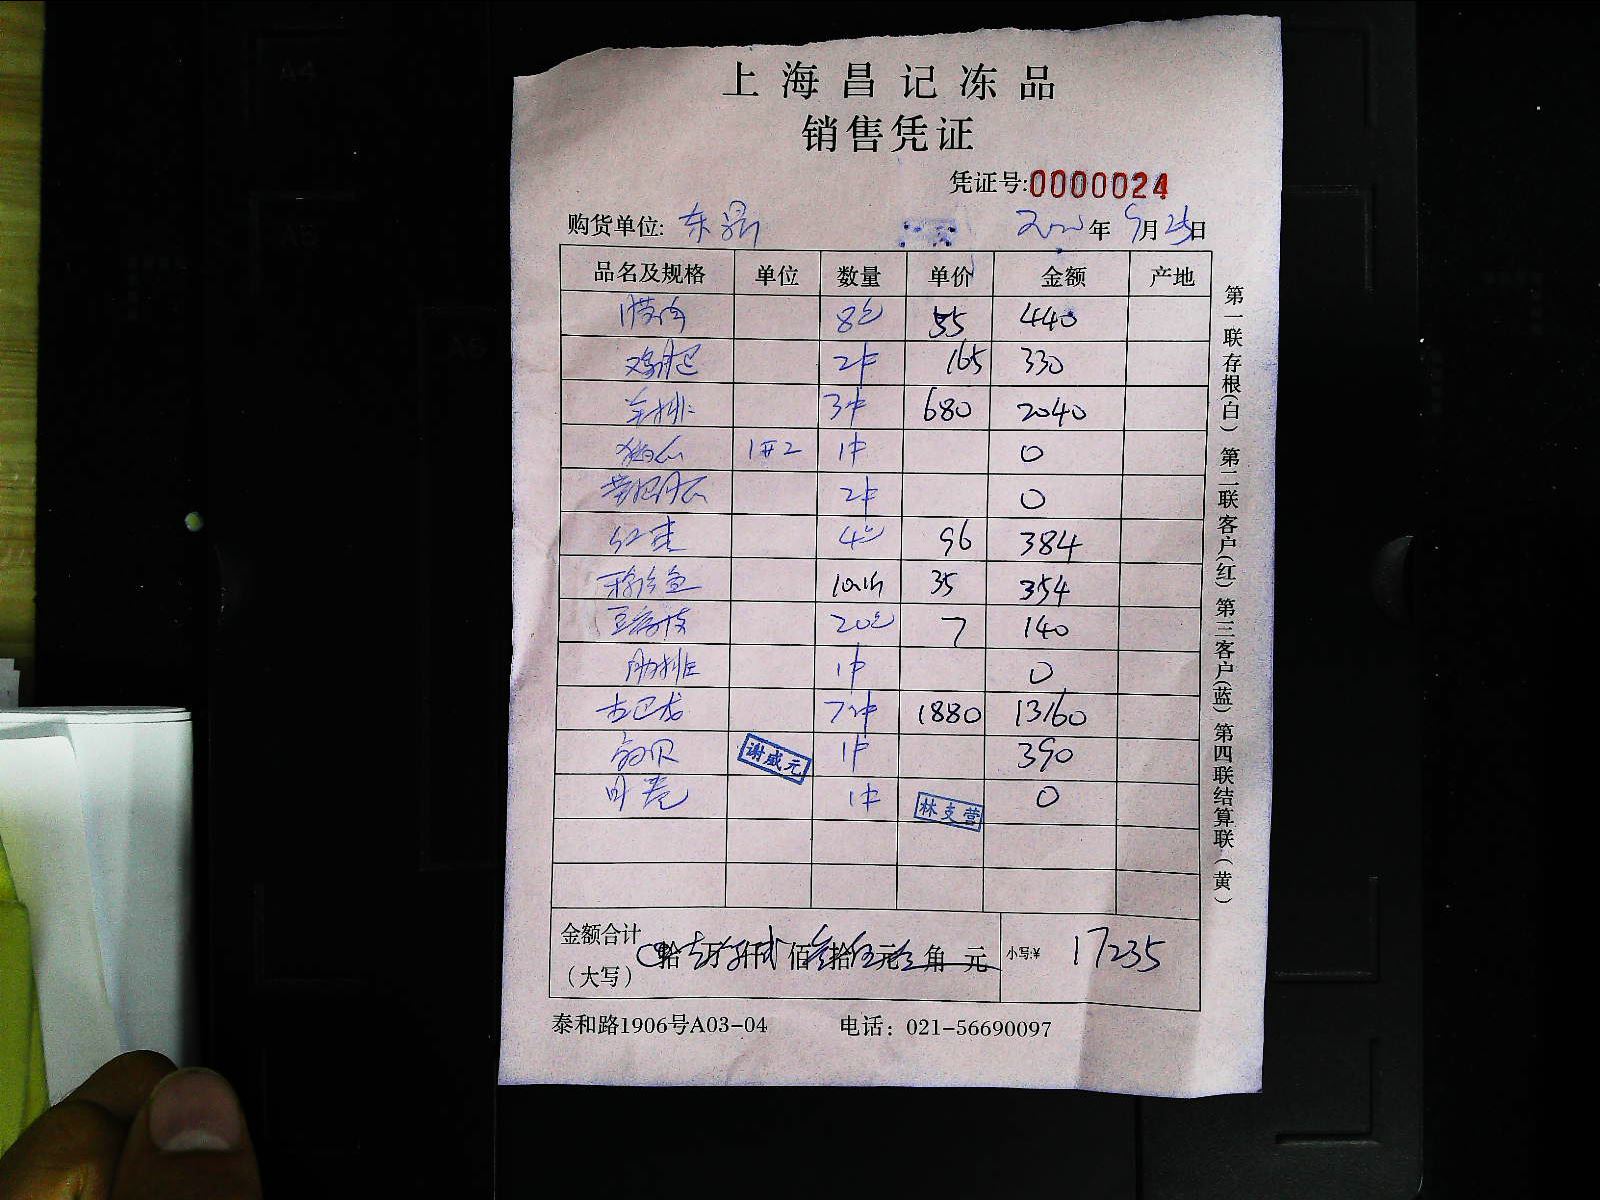 上海昌记冻品
销售凭证
凭证号:0000024
购货单位: 东 年 9月25日
品名及规格 单位 数量 单价 金额 产地
8包 55 440
鸡腿 2件 165 330
羊排 3件 680 2040
1#2 1件 0
2件 0
4包 96 384
35 354
豆腐 20包 7 140
肋排 1件 0
古巴龙 7件 1880 13160
贝 谢威元 1件 390
卷 1件 林支营 0
金额合计
(大写) 拾 万 仟 佰 拾 元 角 元 小写:¥ 17235
泰和路1906号A03-04 电话: 021-56690097
第一联存根(白) 第二联客户(红) 第三客户(蓝) 第四联结算联(黄)